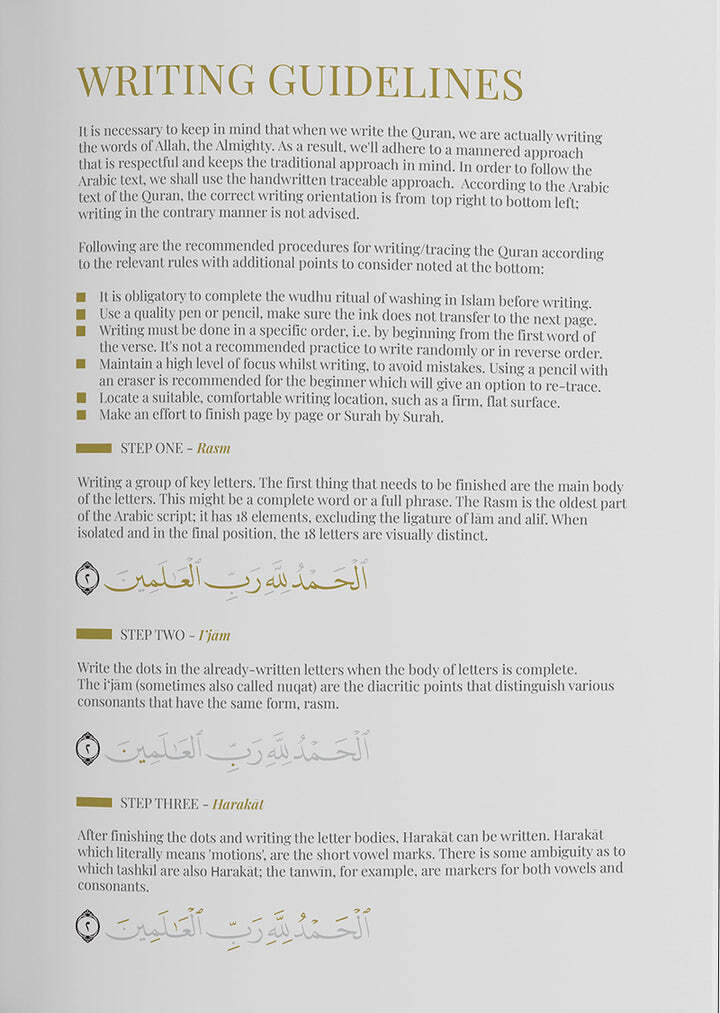 WRITING GUIDELINES
It is necessary to keep in mind that when we write the Quran, we are actually writing
the words of Allah, the Almighty. As a result, we'll adhere to a mannered approach
that is respectful and keeps the traditional approach in mind. In order to follow the
Arabic text, we shall use the handwritten traceable approach. According to the Arabic
text of the Quran, the correct writing orientation is from top right to bottom left;
writing in the contrary manner is not advised.
Following are the recommended procedures for writing/tracing the Quran according
to the relevant rules with additional points to consider noted at the bottom:
It is obligatory to complete the wudhu ritual of washing in Islam before writing.
Use a quality pen or pencil, make sure the ink does not transfer to the next page.
Writing must be done in a specific order, i.e. by beginning from the first word of
the verse. It's not a recommended practice to write randomly or in reverse order.
Maintain a high level of focus whilst writing, to avoid mistakes. Using a pencil with
an eraser is recommended for the beginner which will give an option to re-trace.
Locate a suitable, comfortable writing location, such as a firm, flat surface.
Make an effort to finish page by page or Surah by Surah.
STEP ONE - Rasm
Writing a group of key letters. The first thing that needs to be finished are the main body
of the letters. This might be a complete word or a full phrase. The Rasm is the oldest part
of the Arabic script; it has 18 elements, excluding the ligature of lām and alif. When
isolated and in the final position, the 18 letters are visually distinct.
ٱلْحَمْدُ لِلَّهِ رَبِّ ٱلْعَـٰلَمِينَ ٢
STEP TWO - I'jām
Write the dots in the already-written letters when the body of letters is complete.
The i‘jām (sometimes also called nuqat) are the diacritic points that distinguish various
consonants that have the same form, rasm.
ٱلْحَمْدُ لِلَّهِ رَبِّ ٱلْعَـٰلَمِينَ ٢
STEP THREE - Harakāt
After finishing the dots and writing the letter bodies, Harakāt can be written. Harakāt
which literally means 'motions', are the short vowel marks. There is some ambiguity as to
which tashkīl are also Harakāt; the tanwīn, for example, are markers for both vowels and
consonants.
ٱلْحَمْدُ لِلَّهِ رَبِّ ٱلْعَـٰلَمِينَ ٢